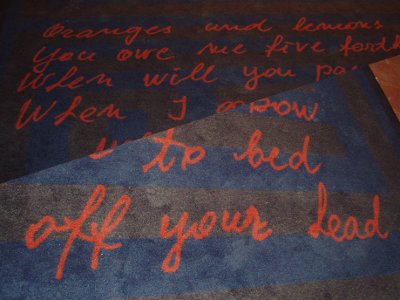 oranges and lemons
You owe me five farth
When will you pa
When I grow
to bed
off your head